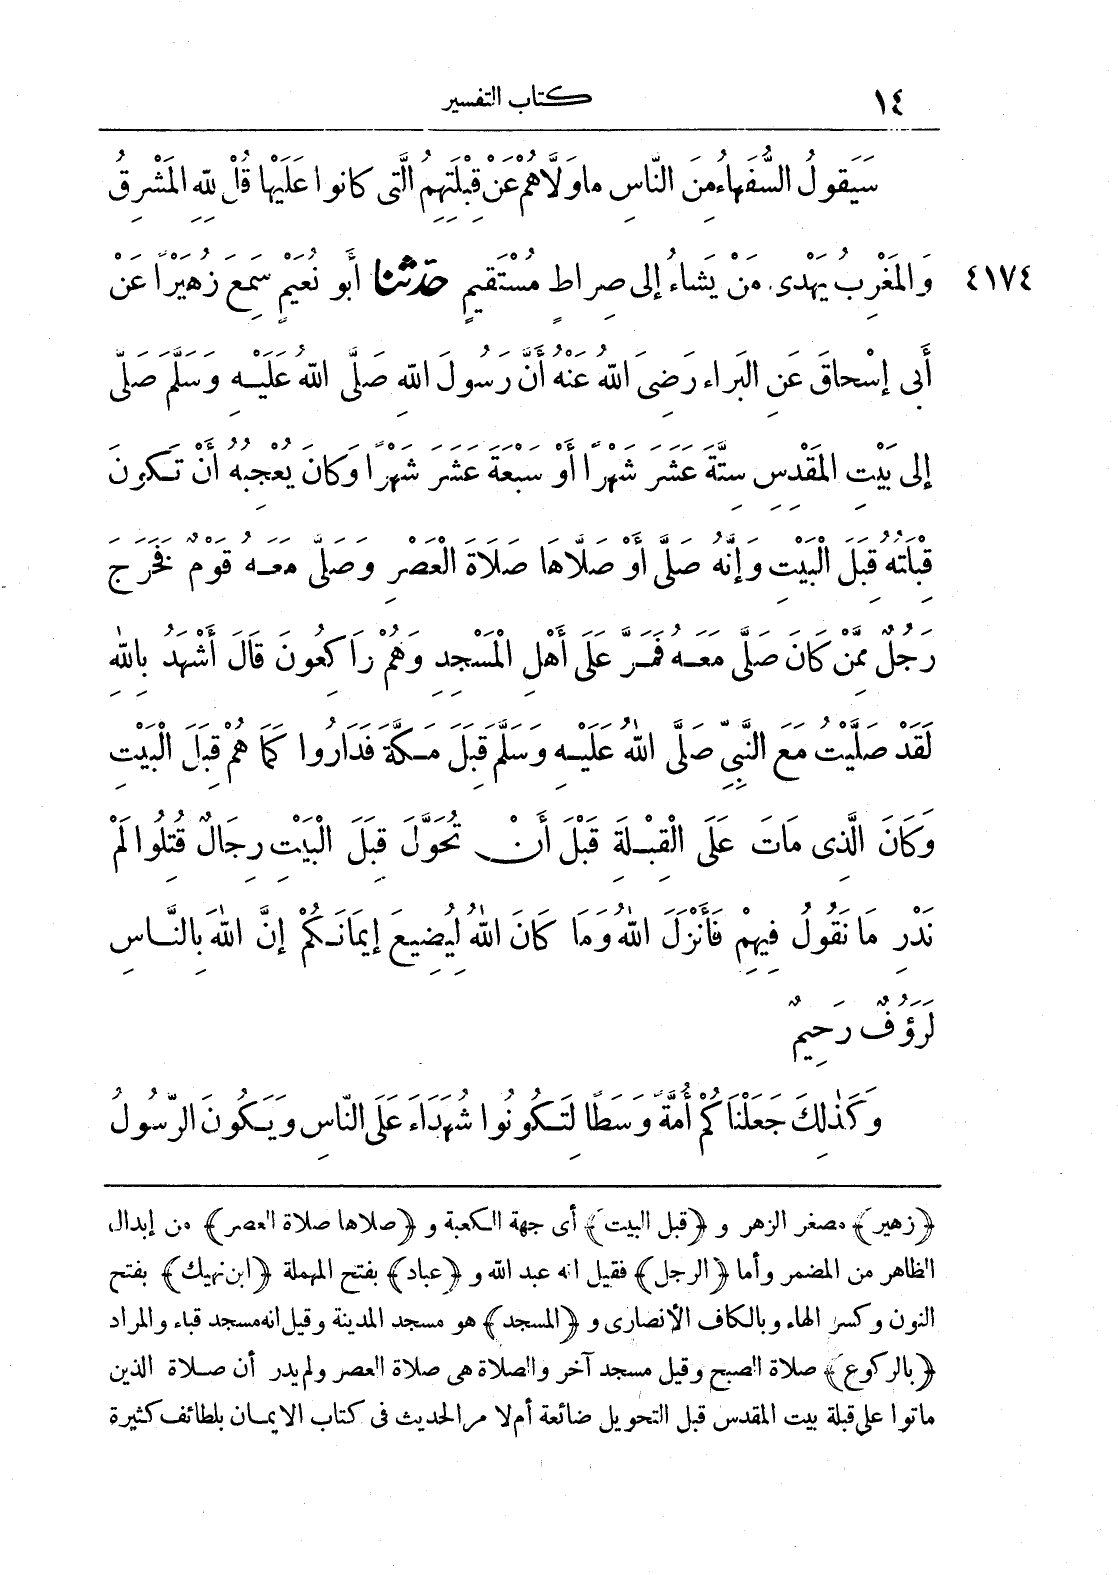 ١٤ كتاب التفسير
سَيَقولُ السُّفَهاءُ مِنَ النّاسِ ماوَلَّاهُمْ عَنْ قِبْلَتِهِمُ الَّتى كانوا عَلَيْها قُلْ للهِ المَشْرِقُ
٤١٧٤ وَالمَغْرِبُ يَهْدى مَنْ يَشاءُ إلى صِراطٍ مُسْتَقيمٍ حَدّثنا أبو نُعَيْمٍ سَمِعَ زُهَيْرًا عَنْ
أَبى إسْحاقَ عَنِ البَراء رَضِىَ اللهُ عَنْهُ أَنَّ رَسُولَ اللهِ صَلَّى اللهُ عَلَيْهِ وَسَلَّمَ صَلَّى
إلى بَيْتِ المَقْدِسِ سِتَّةَ عَشَرَ شَهْرًا أَوْ سَبْعَةَ عَشَرَ شَهْرًا وَكانَ يُعْجِبُهُ أَنْ تَكونَ
قِبْلَتُهُ قِبَلَ الْبَيْتِ وَإنَّهُ صَلَّى أَوْ صَلَّاهَا صَلَاةَ الْعَصْرِ وَصَلَّى مَعَهُ قَوْمٌ فَخَرَجَ
رَجُلٌ مِمَّنْ كَانَ صَلَّى مَعَهُ فَمَرَّ عَلَى أَهْلِ الْمَسْجِدِ وَهُمْ رَاكِعُونَ قَالَ أَشْهَدُ بِاللهِ
لَقَدْ صَلَّيْتُ مَعَ النَّبِيِّ صَلَّى اللهُ عَلَيْهِ وَسَلَّمَ قِبَلَ مَكَّةَ فَدَارُوا كَمَا هُمْ قِبَلَ الْبَيْتِ
وَكَانَ الَّذِى مَاتَ عَلَى الْقِبْلَةِ قَبْلَ أَنْ تُحَوَّلَ قِبَلَ الْبَيْتِ رِجَالٌ قُتِلُوا لَمْ
نَدْرِ مَا نَقُولُ فِيهِمْ فَأَنْزَلَ اللهُ وَمَا كَانَ اللهُ لِيُضِيعَ إيمَانَكُمْ إنَّ اللهَ بِالنَّاسِ
لَرَؤُفٌ رَحِيمٌ
وَكَذٰلِكَ جَعَلْنَاكُمْ أُمَّةً وَسَطًا لِتَكُونُوا شُهَدَاءَ عَلَى النّاسِ وَيَكُونَ الرّسُولُ
﴿زهير﴾ مصغر الزهر و ﴿قبل البيت﴾ أى جهة الكعبة و ﴿صلاها صلاة العصر﴾ من إبدال
الظاهر من المضمر وأما ﴿الرجل﴾ فقيل انه عبد الله و ﴿عباد﴾ بفتح المهملة ﴿ابن نهيك﴾ بفتح
النون وكسر الهاء وبالكاف الأنصارى و ﴿المسجد﴾ هو مسجد المدينة وقيل انه مسجد قباء والمراد
﴿بالركوع﴾ صلاة الصبح وقيل مسجد آخر والصلاة هى صلاة العصر ولم يدر أن صلاة الذين
ماتوا على قبلة بيت المقدس قبل التحويل ضائعة أم لا مر الحديث فى كتاب الايمان بلطائف كثيرة